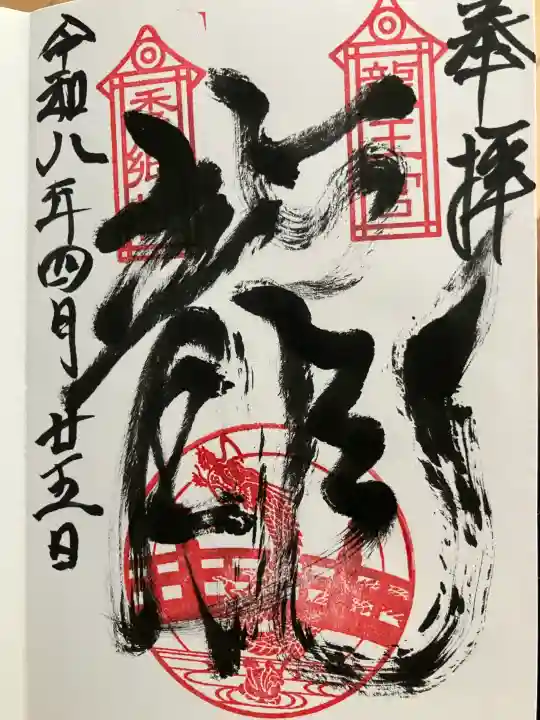 奉拝
龍王宮
龍
令和八年四月廿五日